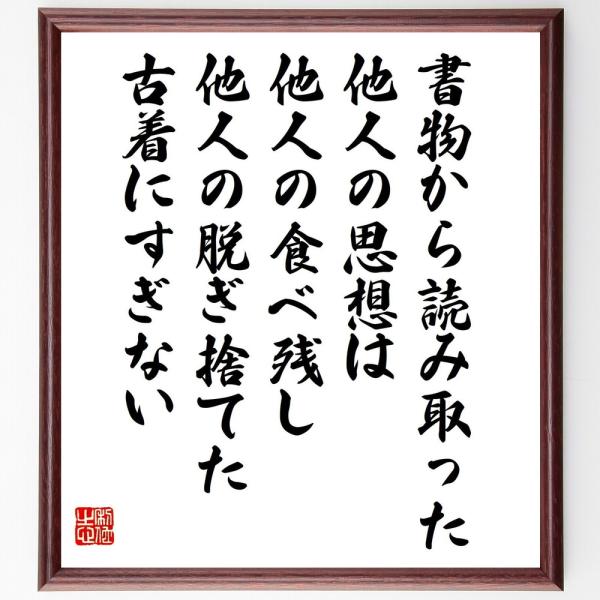 書物から読み取った
他人の思想は
他人の食べ残し
他人の脱ぎ捨てた
古着にすぎない